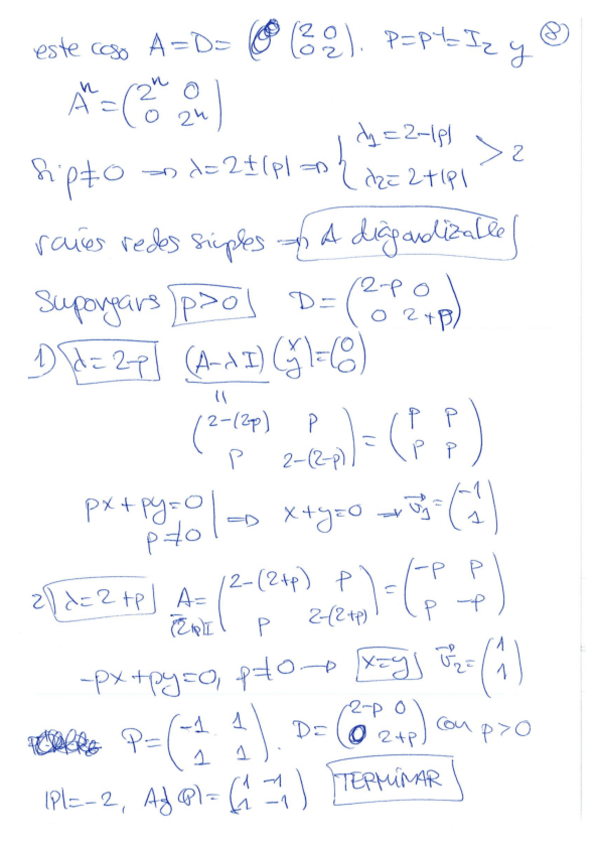 este caso A=D= (2 0 0 2). P=P⁻¹=I₂ y ⑧
Aⁿ=(2ⁿ 0 0 2ⁿ)
Si p≠0 ⇒ λ=2±|p| ⇒ { λ₁=2-|p| λ₂=2+|p| > 2
raíces reales simples ⇒ A diagonalizable
Supongamos p>0 D=(2-p 0 0 2+p)
1) λ=2-p (A-λI)(x y)=(0 0)
"
(2-(2p) p p 2-(2-p))=(p p p p)
px+py=0 p≠0 | ⇒ x+y=0 → v⃗₁=(-1 1)
2) λ=2+p A-(2+p)I=(2-(2+p) p p 2-(2+p))=(-p p p -p)
-px+py=0, p≠0 → x=y v⃗₂=(1 1)
P=(-1 1 1 1). D=(2-p 0 0 2+p) con p>0
|P|=-2, Adj(P)=(1 -1 1 -1) TERMINAR